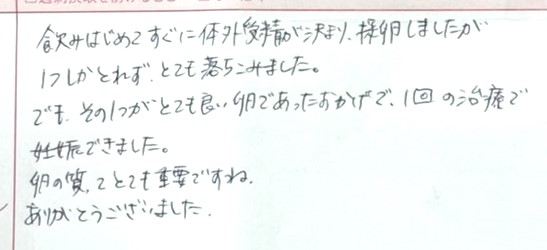 飲みはじめてすぐに体外受精が決まり、採卵しましたが
1つしかとれず、とても落ちこみました。
でも、その1つがとても良い卵であったおかげで、1回の治療で
妊娠できました。
卵の質、てとても重要ですね。
ありがとうございました。